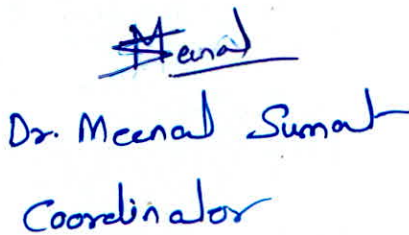 Meenal
Dr. Meenal Sumat
Coordinator